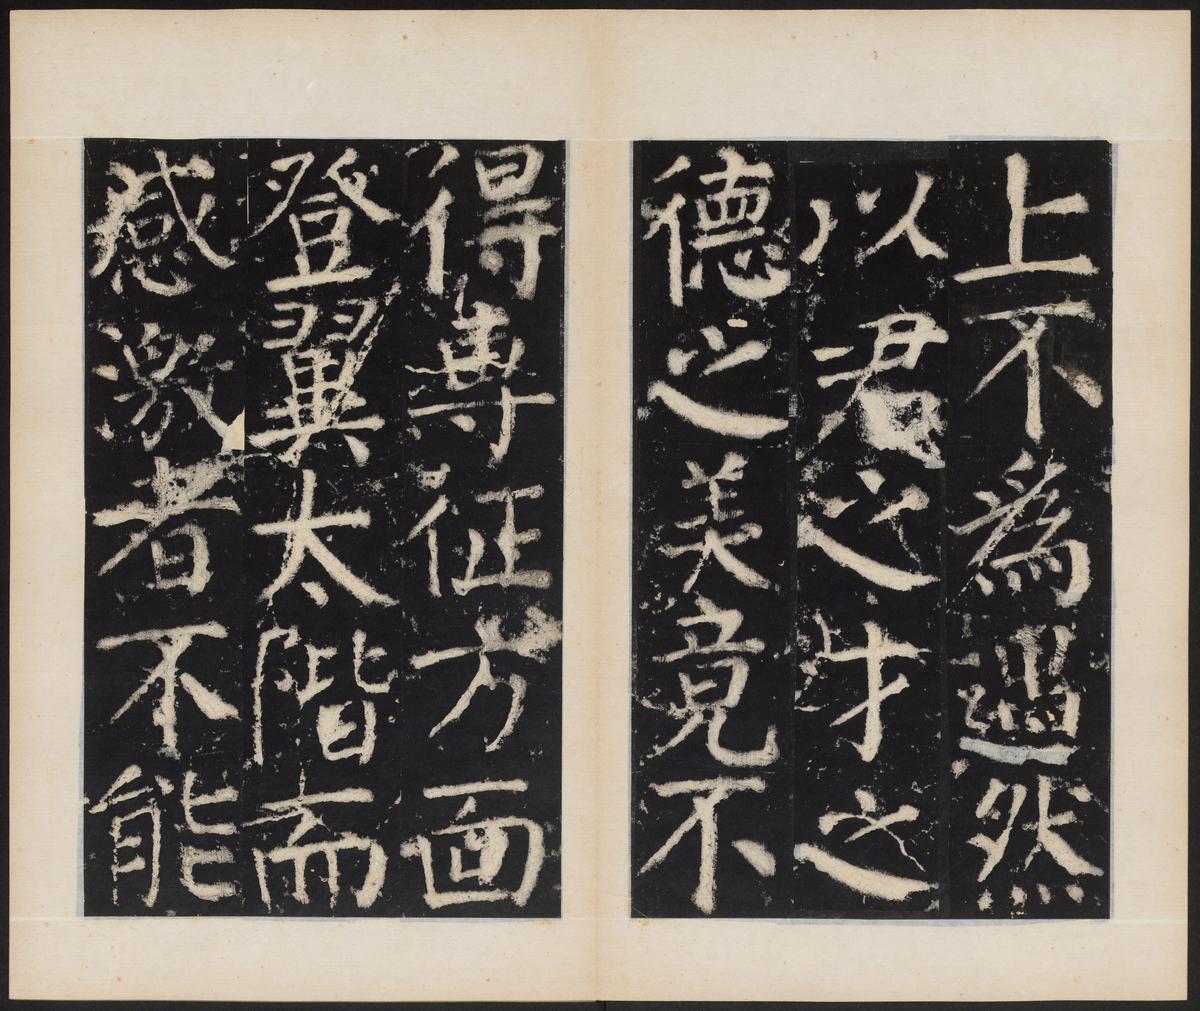 上不為遇然
以君之才之
德之美竟不
得專征方面
登翼太階而
感激者不能